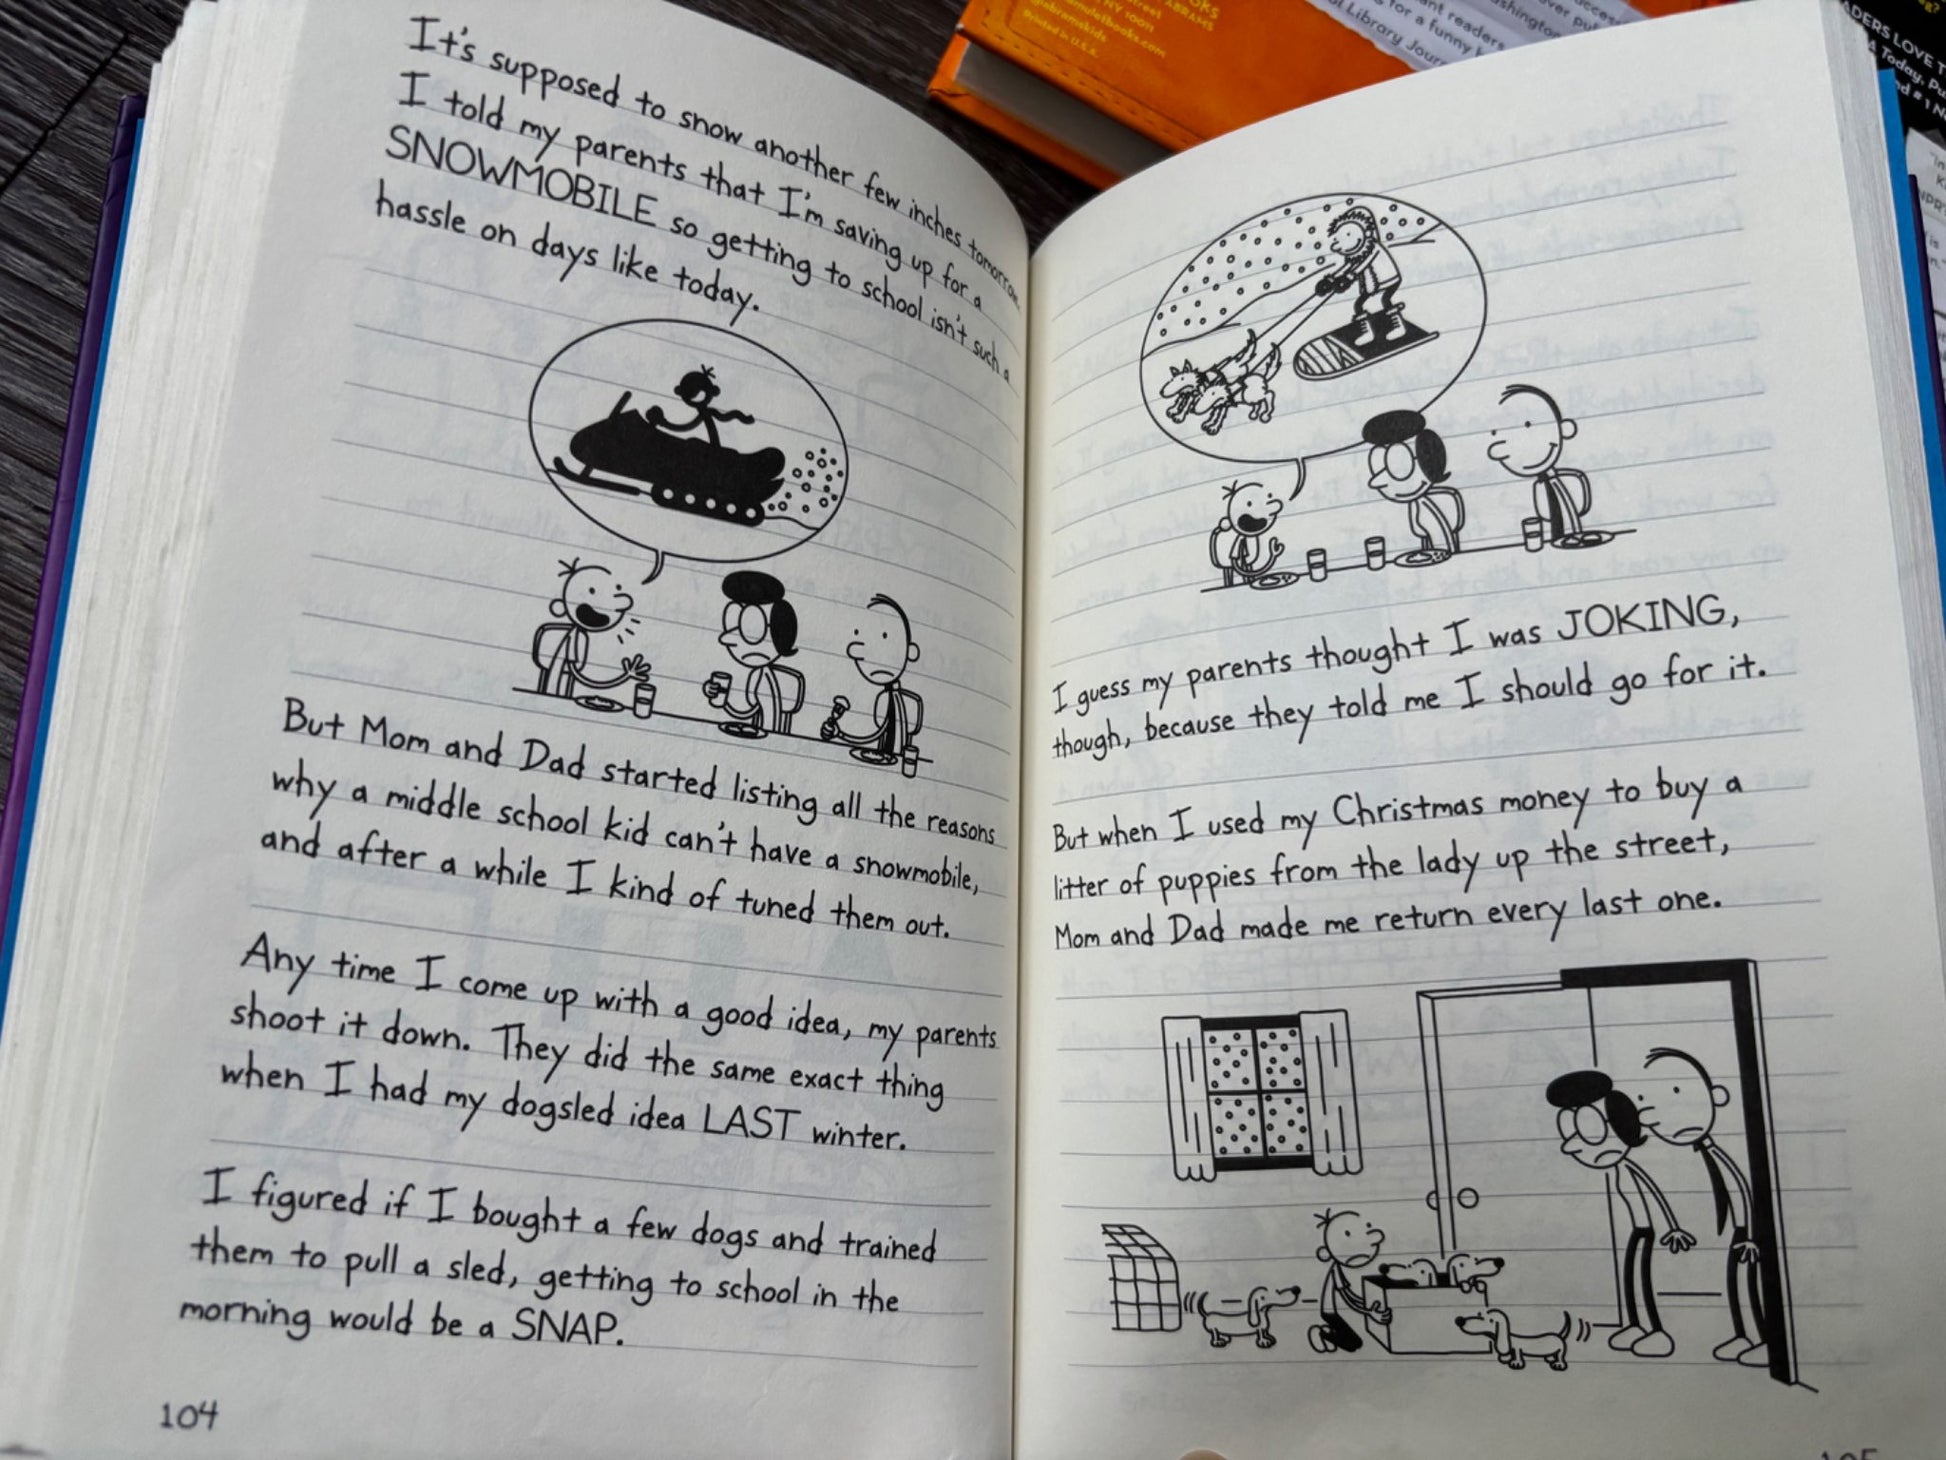 It's supposed to snow another few inches tomorrow.
I told my parents that I'm saving up for a
SNOWMOBILE so getting to school isn't such a
hassle on days like today.
But Mom and Dad started listing all the reasons
why a middle school kid can't have a snowmobile,
and after a while I kind of tuned them out.
Any time I come up with a good idea, my parents
shoot it down. They did the same exact thing
when I had my dogsled idea LAST winter.
I figured if I bought a few dogs and trained
them to pull a sled, getting to school in the
morning would be a SNAP.
104
I guess my parents thought I was JOKING,
though, because they told me I should go for it.
But when I used my Christmas money to buy a
litter of puppies from the lady up the street,
Mom and Dad made me return every last one.
105
ABRAMS
NY 10011
amuletbooks.com
Printed in U.S.A.
readers
for a funny
Library Journ
LOVE
Today,